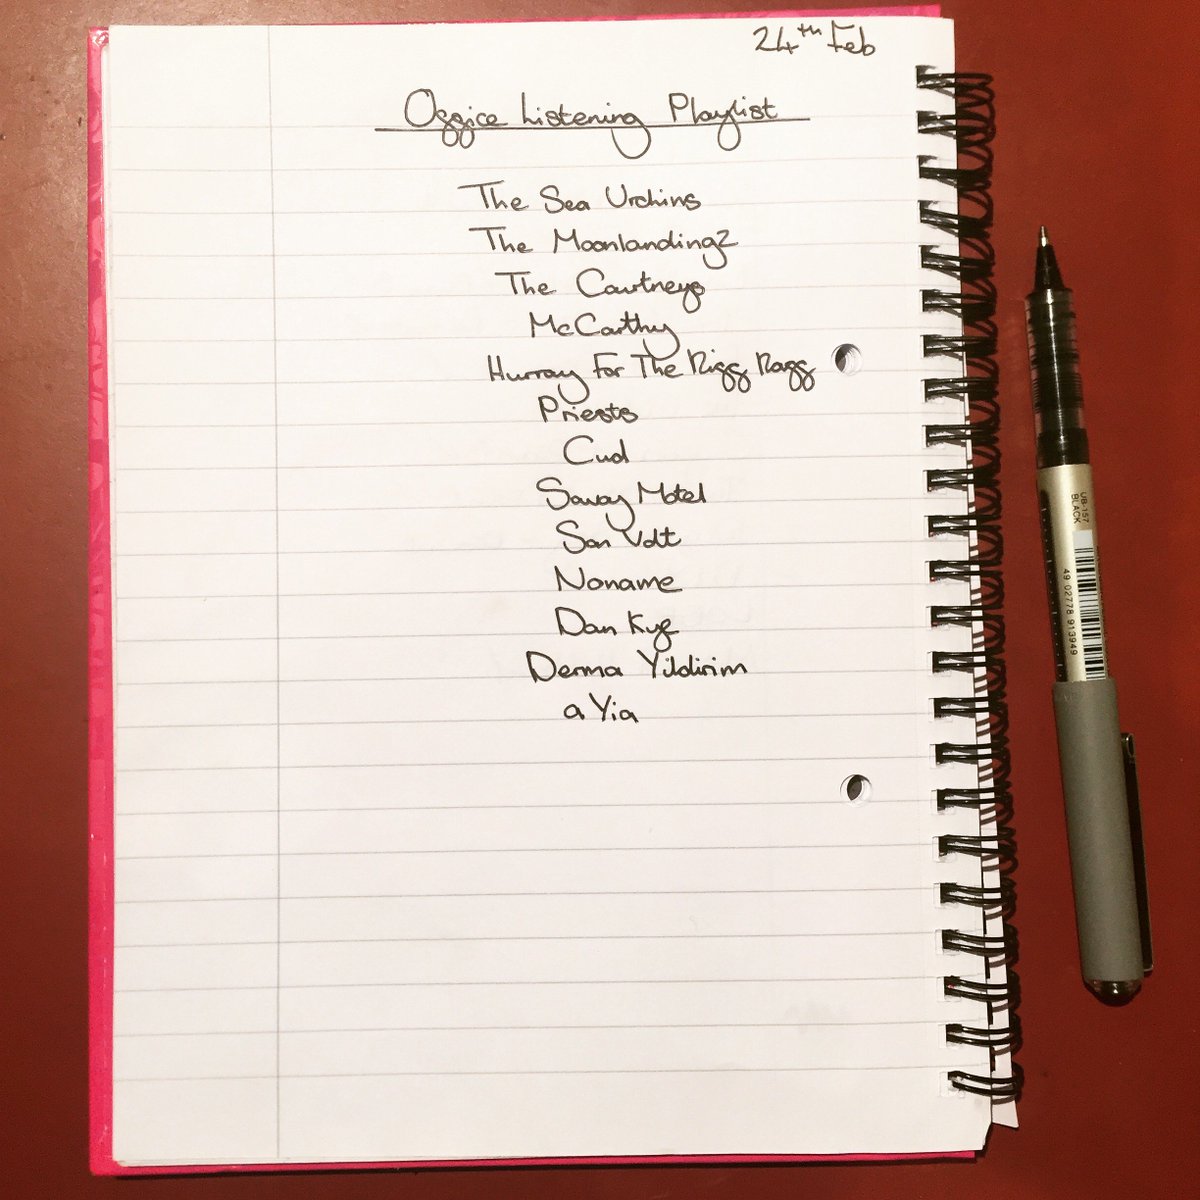 24th Feb
Office Listening Playlist
The Sea Urchins
The Moonlandingz
The Courtneys
McCarthy
Hurray For The Riff Raff
Priests
Cud
Savoy Motel
Son Volt
Noname
Dan Kye
Derma Yildirim
a Yia
UB-157
BLACK
49 02778 913949